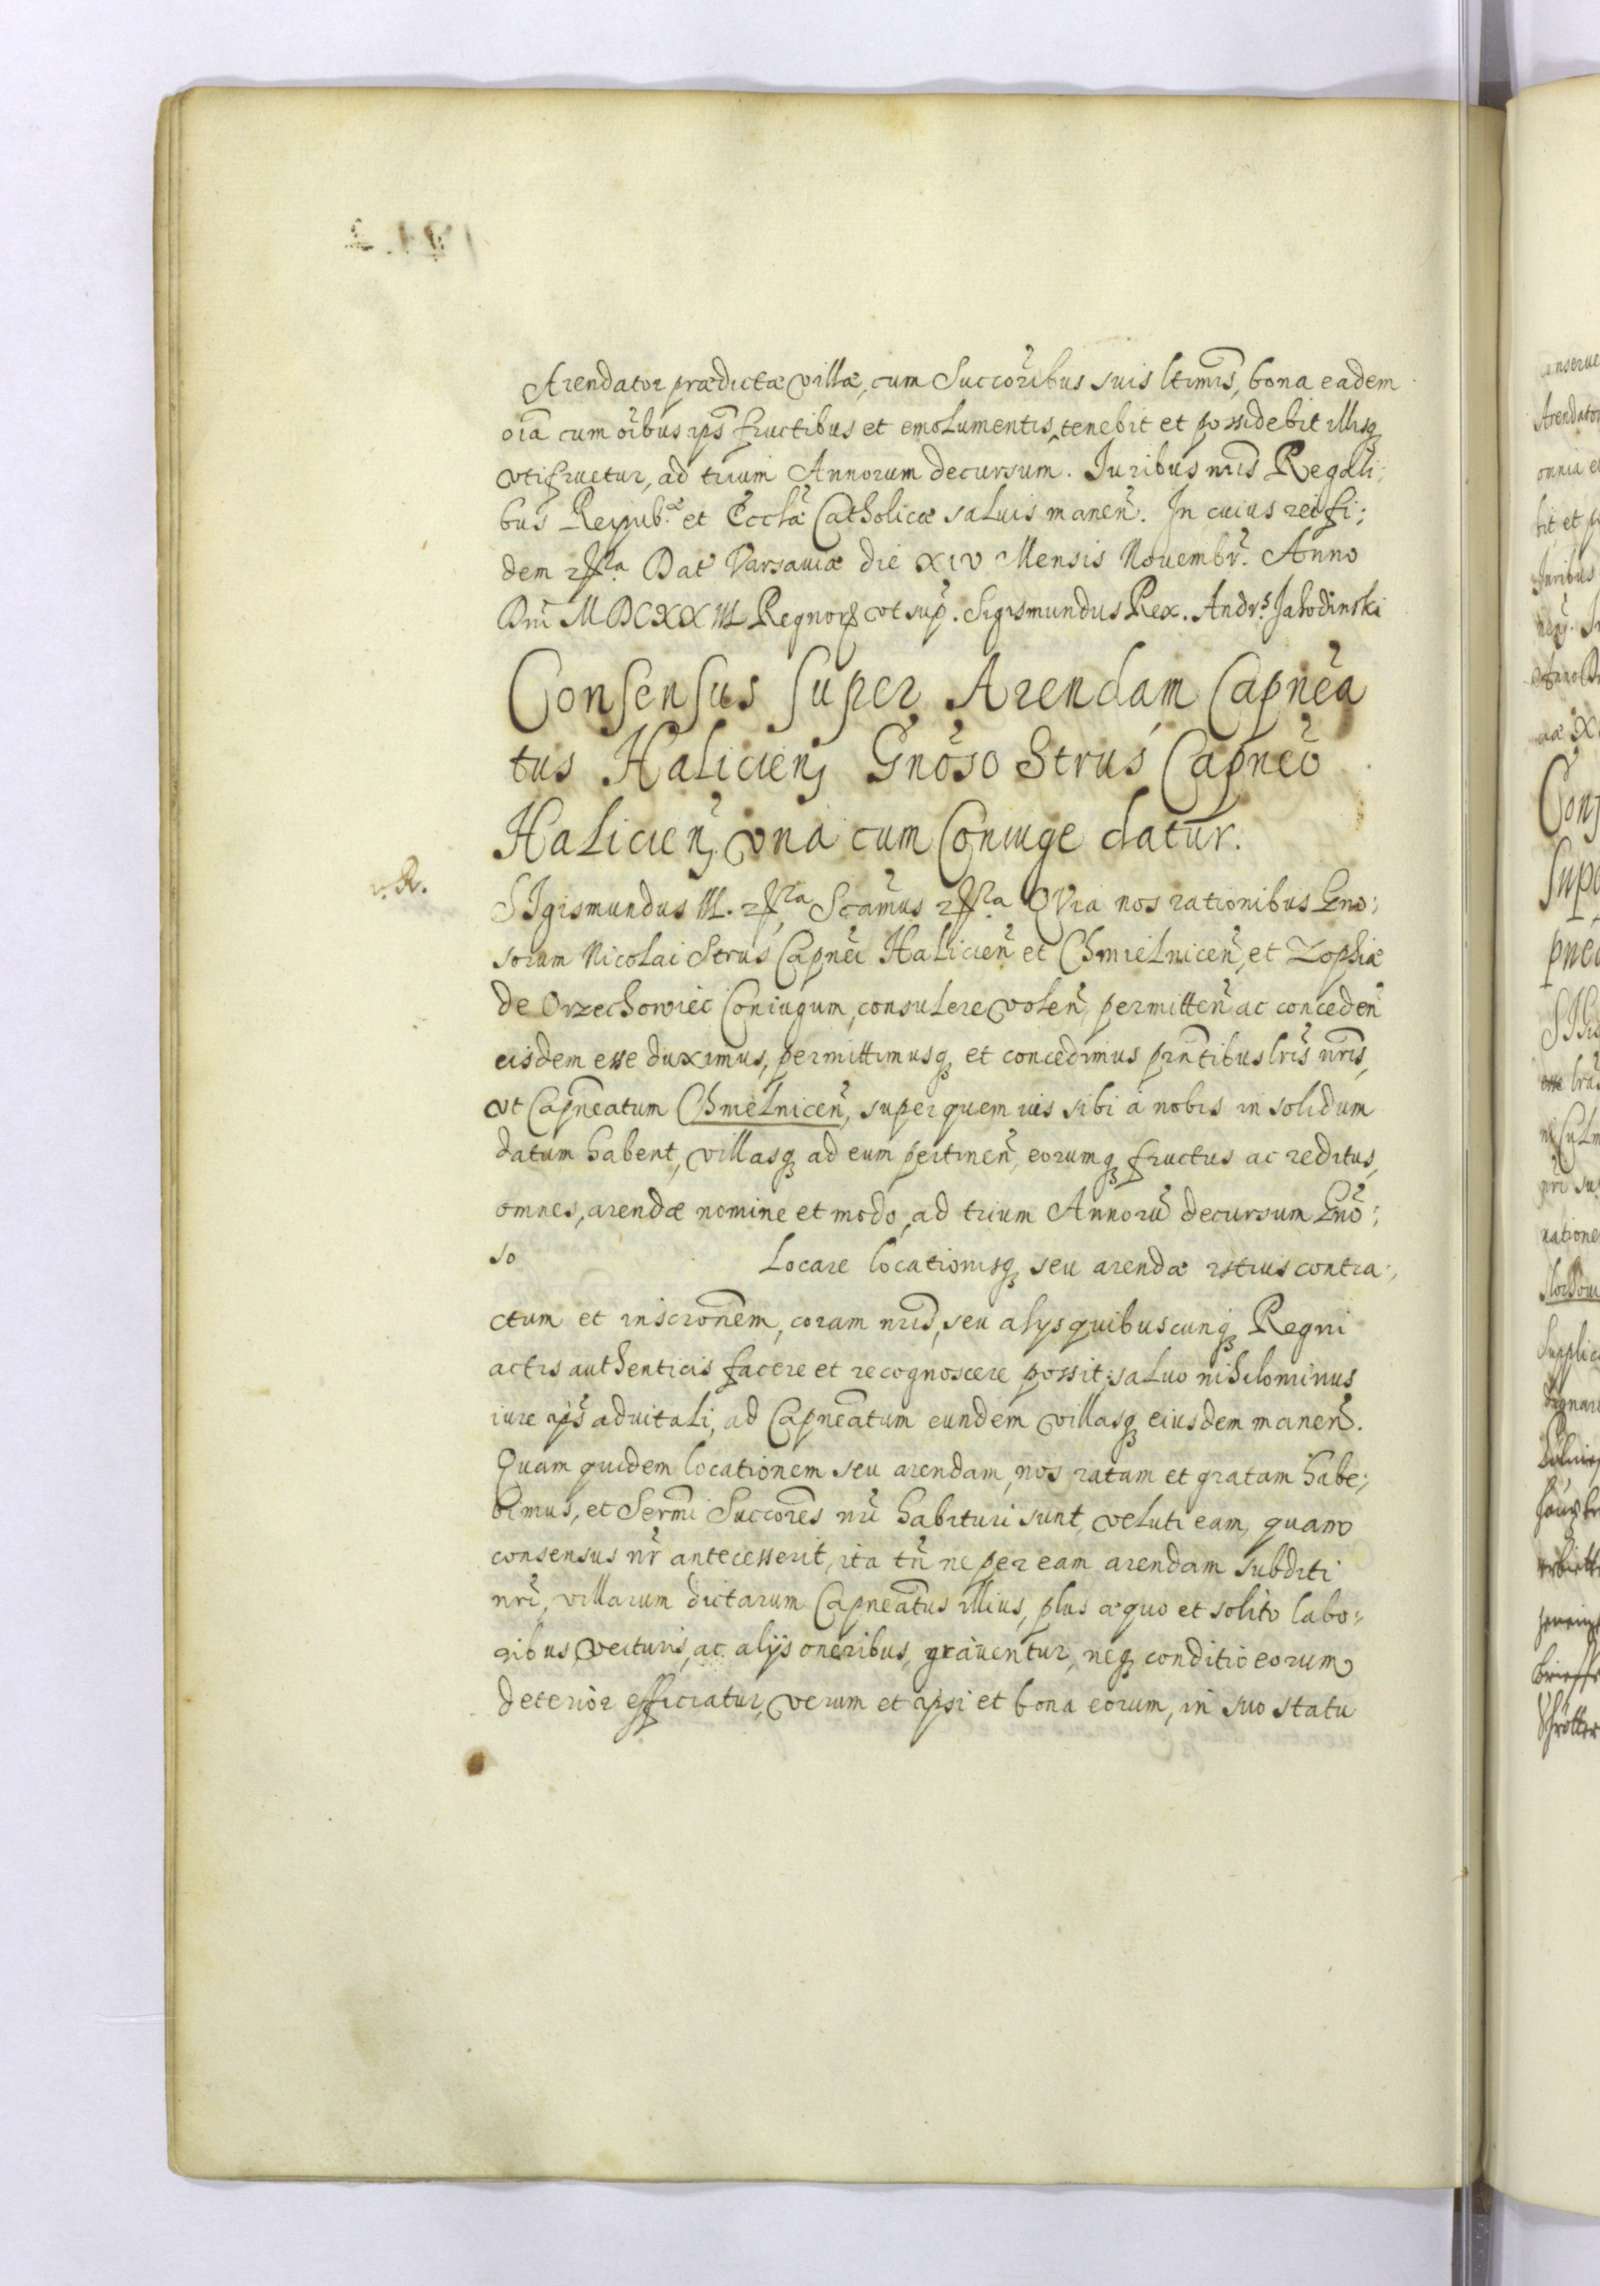 Arendator prædictæ villæ, cum Succoribus suis ltimis, bona eadem
oia cum oibus ips fructibus et emolumentis, tenebit et possidebit illisq
vtifruetur, ad trium Annorum decursum. Iuribus nris Regali:
bus Reipub.æ et Ecclæ Catholicæ saluis manen. In cuius rei fi:
dem Dat Varsauiæ die XIV Mensis Nouembr. Anno
Dni MDCXXIII Regnor vt sup. Sigismundus Rex. Andrs. Jakodinski
Consensus super Arendam Capnea
tus Halicien, Gnoso Strus Capneo
Halicien, vna cum Coniuge datur.
SIgismundus III. Scamus QVia nos rationibus Gno:
sorum Nicolai Strus Capnei Halicien et Chmielnicen, et Zophiæ
de Orzechowiec Coniugum, consulere volen, permitten ac conceden
eisdem esse duximus, permittimusq et concedimus pntibus lris nris,
vt Capneatum Chmelnicen, super quem ius sibi a nobis in solidum
datum habent, villasq ad eum pertinen, eorumq fructus ac reditus,
omnes, arendæ nomine et modo, ad trium Annoru decursum Gno:
so Locare locationisq seu arendæ istius contra:
ctum et inscronem, coram nris, seu alys quibuscunq Regni
actis authenticis facere et recognoscere possit; saluo nihilominus
iure ips aduitali, ad Capneatum eundem villasq eiusdem manen.
Quam quidem locationem seu arendam, nos ratam et gratam habe:
bimus, et Sermi Succores nri habituri sunt, veluti eam, quam
consensus nr antecesserit, ita tn ne per eam arendam subditi
nri, villarum dictarum Capneatus illius, plus æquo et solito labo:
ribus, vecturis, ac alijs oneribus, grauentur, neq conditio eorum
deterior efficiatur, verum et ipsi et bona eorum, in suo statu